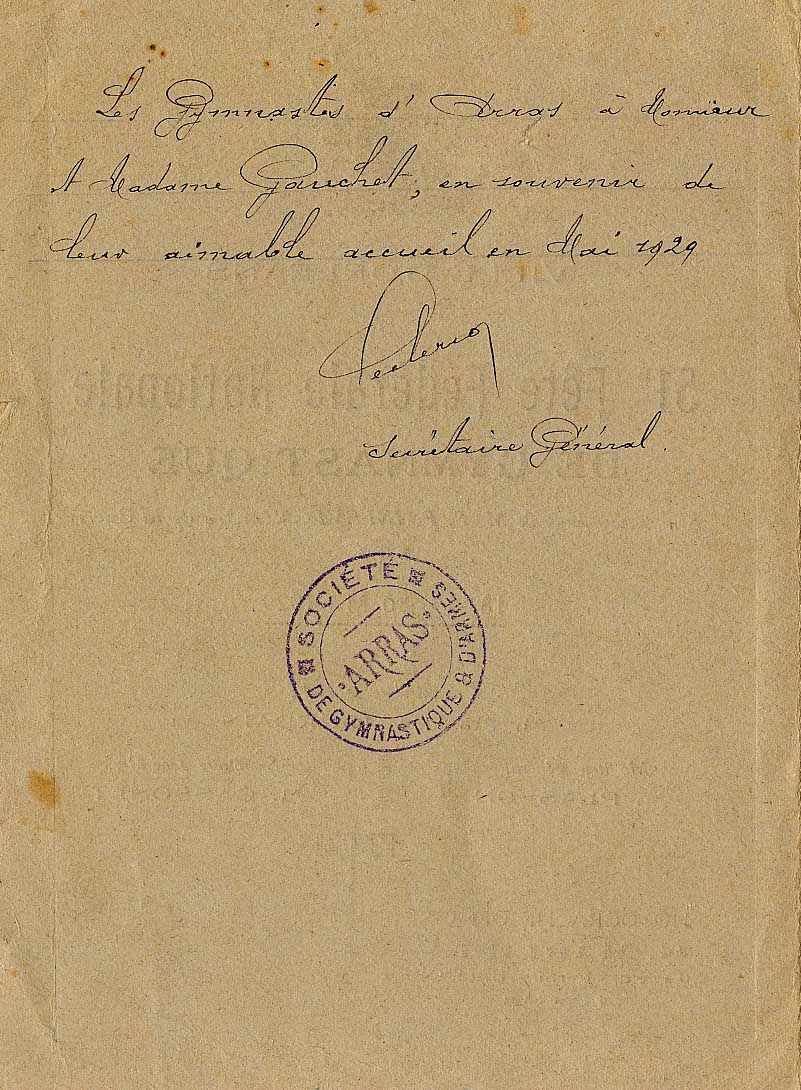 Les Gymnastes d'Arras à Monsieur
et Madame Gauchet, en souvenir de
leur aimable accueil en Mai 1929
Leclercq
Secrétaire Général.
SOCIÉTÉ
DE GYMNASTIQUE & D'ARMES
ARRAS
51e Fête Fédérale Nationale